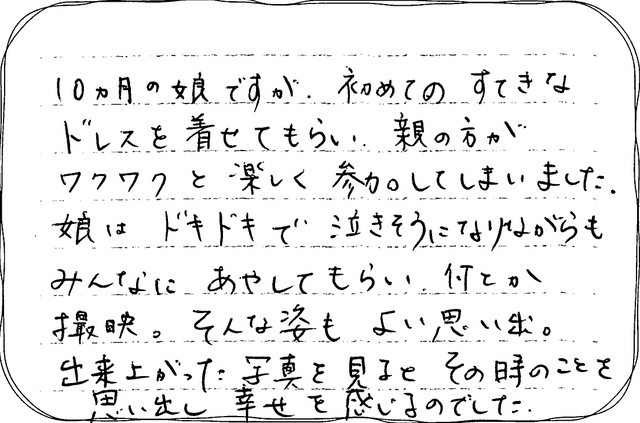 10ヵ月の娘ですが、初めてのすてきな
ドレスを着せてもらい、親の方が
ワクワクと楽しく参加してしまいました。
娘はドキドキで泣きそうになりながらも
みんなにあやしてもらい、何とか
撮映。そんな姿もよい思い出。
出来上がった写真を見るとその時のことを
思い出し幸せを感じるのでした。